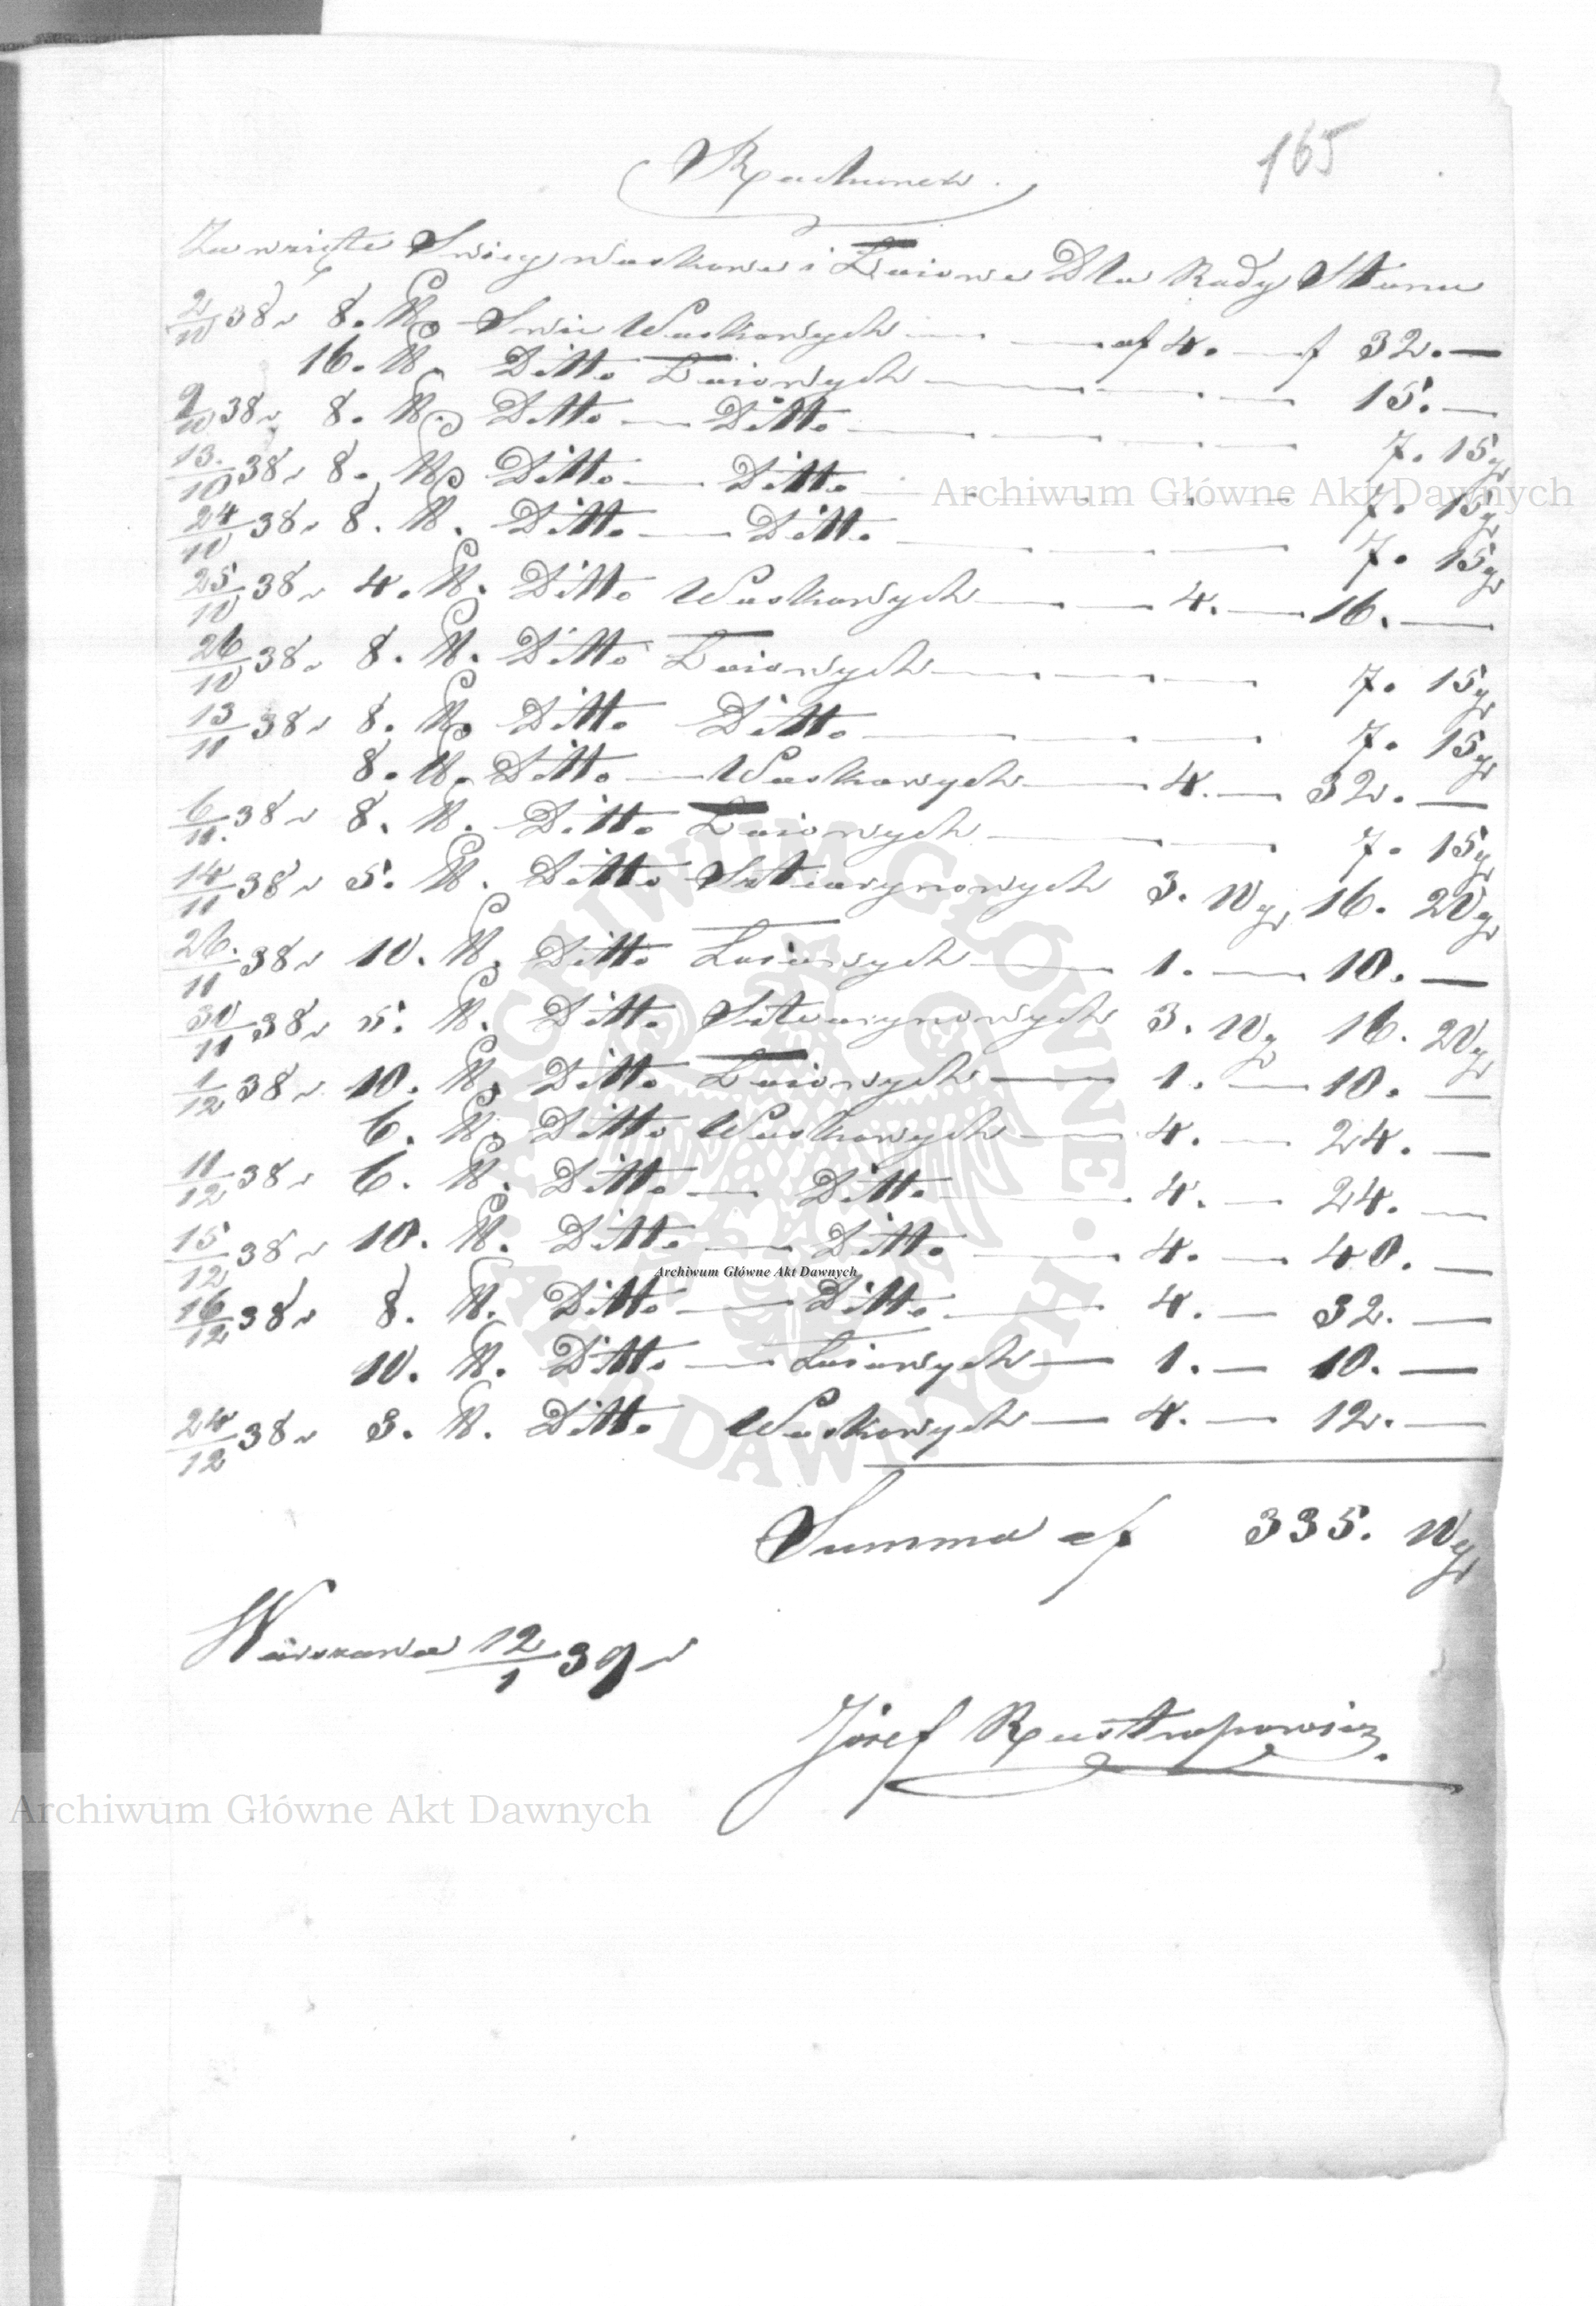 165
Rachunek.
Za wzięte Swiéy woskowe i Łoiowe Dla Rady Stanu
2/10 38 r 8. ℔. Swie Woskowych — — af 4. — f 32. —
16. ℔. Ditto Łoiowych — — — 15. —
9/10 38 r 8. ℔. Ditto — Ditto — — — 7. 15 gr
13./10 38 r 8. ℔. Ditto — Ditto — — — 7. 15 gr
24/10 38 r 8. ℔. Ditto — Ditto — — — 7. 15 gr
25/10 38 r 4. ℔. Ditto Woskowych — — 4. — 16. —
26/10 38 r 8. ℔. Ditto Łoiowych — — — 7. 15 gr
13/11 38 r 8. ℔. Ditto Ditto — — — 7. 15 gr
8. ℔. Ditto — Woskowych — 4. — 32. —
6/11. 38 r 8. ℔. Ditto Łoiowych — — — 7. 15 gr
14/11 38 r 5. ℔. Ditto Sztearynowych 3. 10 gr 16. 20 gr
26./11 38 r 10. ℔. Ditto Łoiowych — 1. — 10. —
30/11 38 r 5. ℔. Ditto Sztearynowych 3. 10 gr 16. 20 gr
1/12 38 r 10. ℔. Ditto Łoiowych — 1. — 10. —
6. ℔. Ditto Woskowych — 4. — 24. —
11/12 38 r 6. ℔. Ditto — Ditto — 4. — 24. —
15/12 38 r 10. ℔. Ditto — Ditto — 4. — 40. —
16/12 38 r 8. ℔. Ditto — Ditto — 4. — 32. —
10. ℔. Ditto — Łoiowych — 1. — 10. —
24/12 38 r 3. ℔. Ditto Woskowych — 4. — 12. —
Summa af 335. 10 gr
Warszawa 12/1 39 r
Józef Rostropowicz.
Archiwum Główne Akt Dawnych
Archiwum Główne Akt Dawnych
Archiwum Główne Akt Dawnych
ARCHIWUM GŁÓWNE · AKT DAWNYCH ·